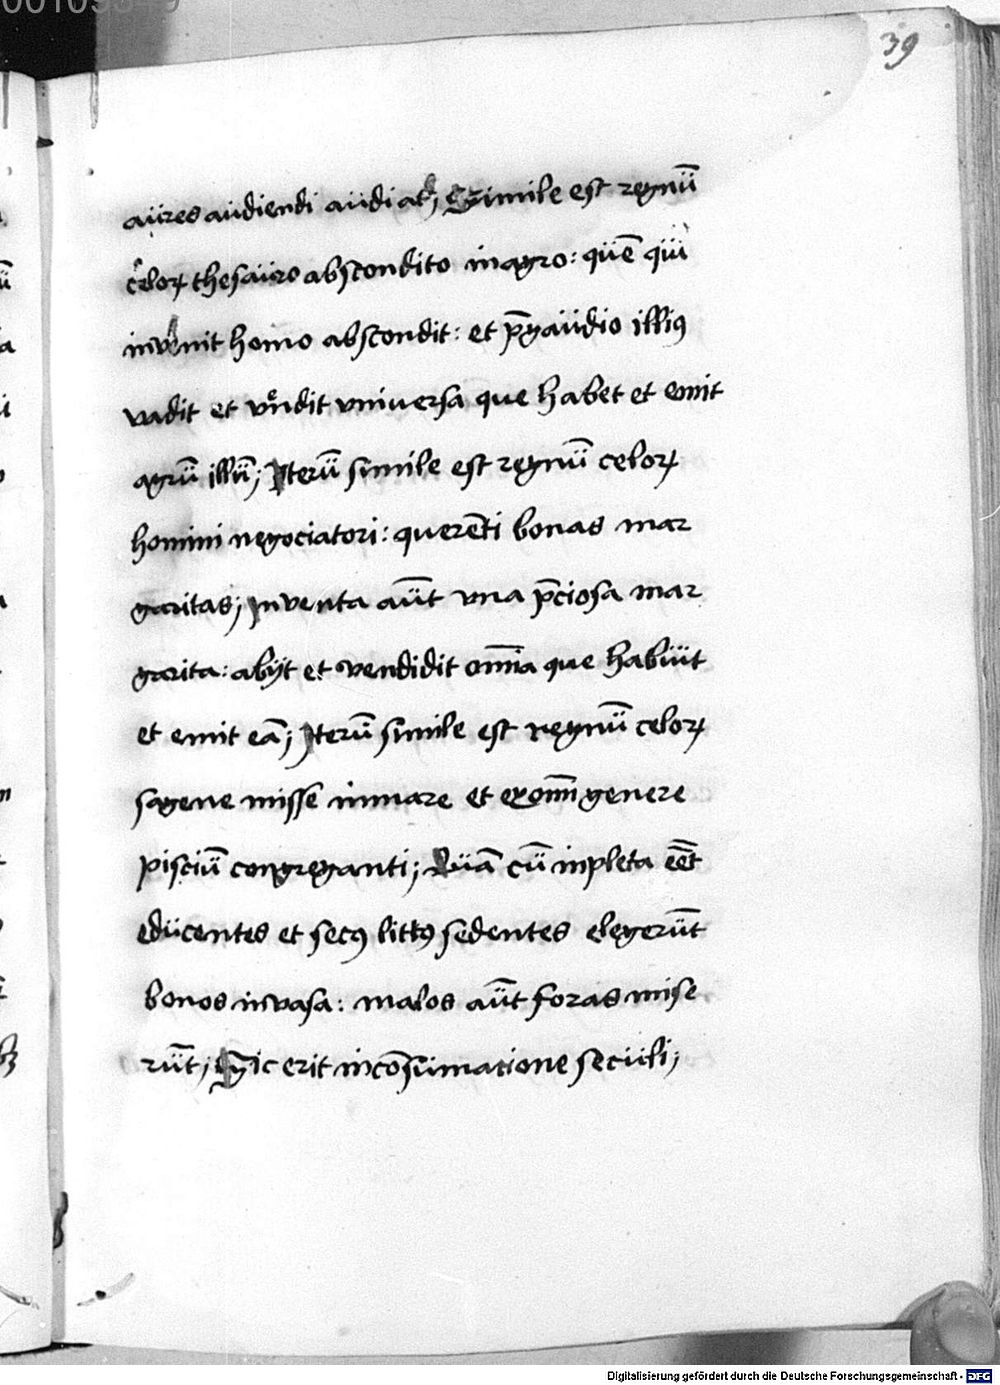 00109349
39
aures audiendi audiat; Simile est regnū
celoꝝ thesauro abscondito inagro: quē qui
invenit homo abscondit: et p̄gaudio illiꝯ
vadit et vēndit vniuersa que habet et emit
agrū illū; Iterū simile est regnū celoꝝ
homini negociatori: querēti bonas mar
garitas; Inventa aūt vna p̄ciosa mar
garita: abijt et vendidit om̄ia que habuit
et emit eā; Iterū simile est regnū celoꝝ
sagene misse inmare et exom̄i genere
pisciū congreganti; Quā cū inpleta eēt
educentes et secꝯ littꝯ sedentes elegerūt
bonos invasa: malos aūt foras mise
rūt; Sic erit incōsumacione seculi;
Digitalisierung gefördert durch die Deutsche Forschungsgemeinschaft - DFG